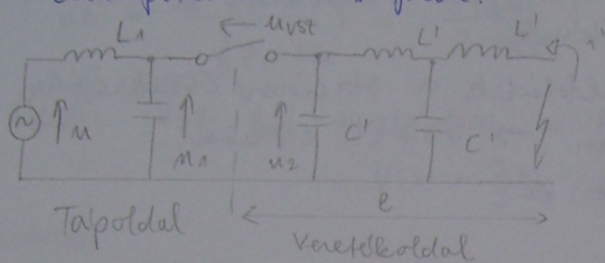 L1
← u_vst
L'
L'
1'
↑u
↑u1
↑u2
C'
C'
l
Tápoldal
Vezetékoldal